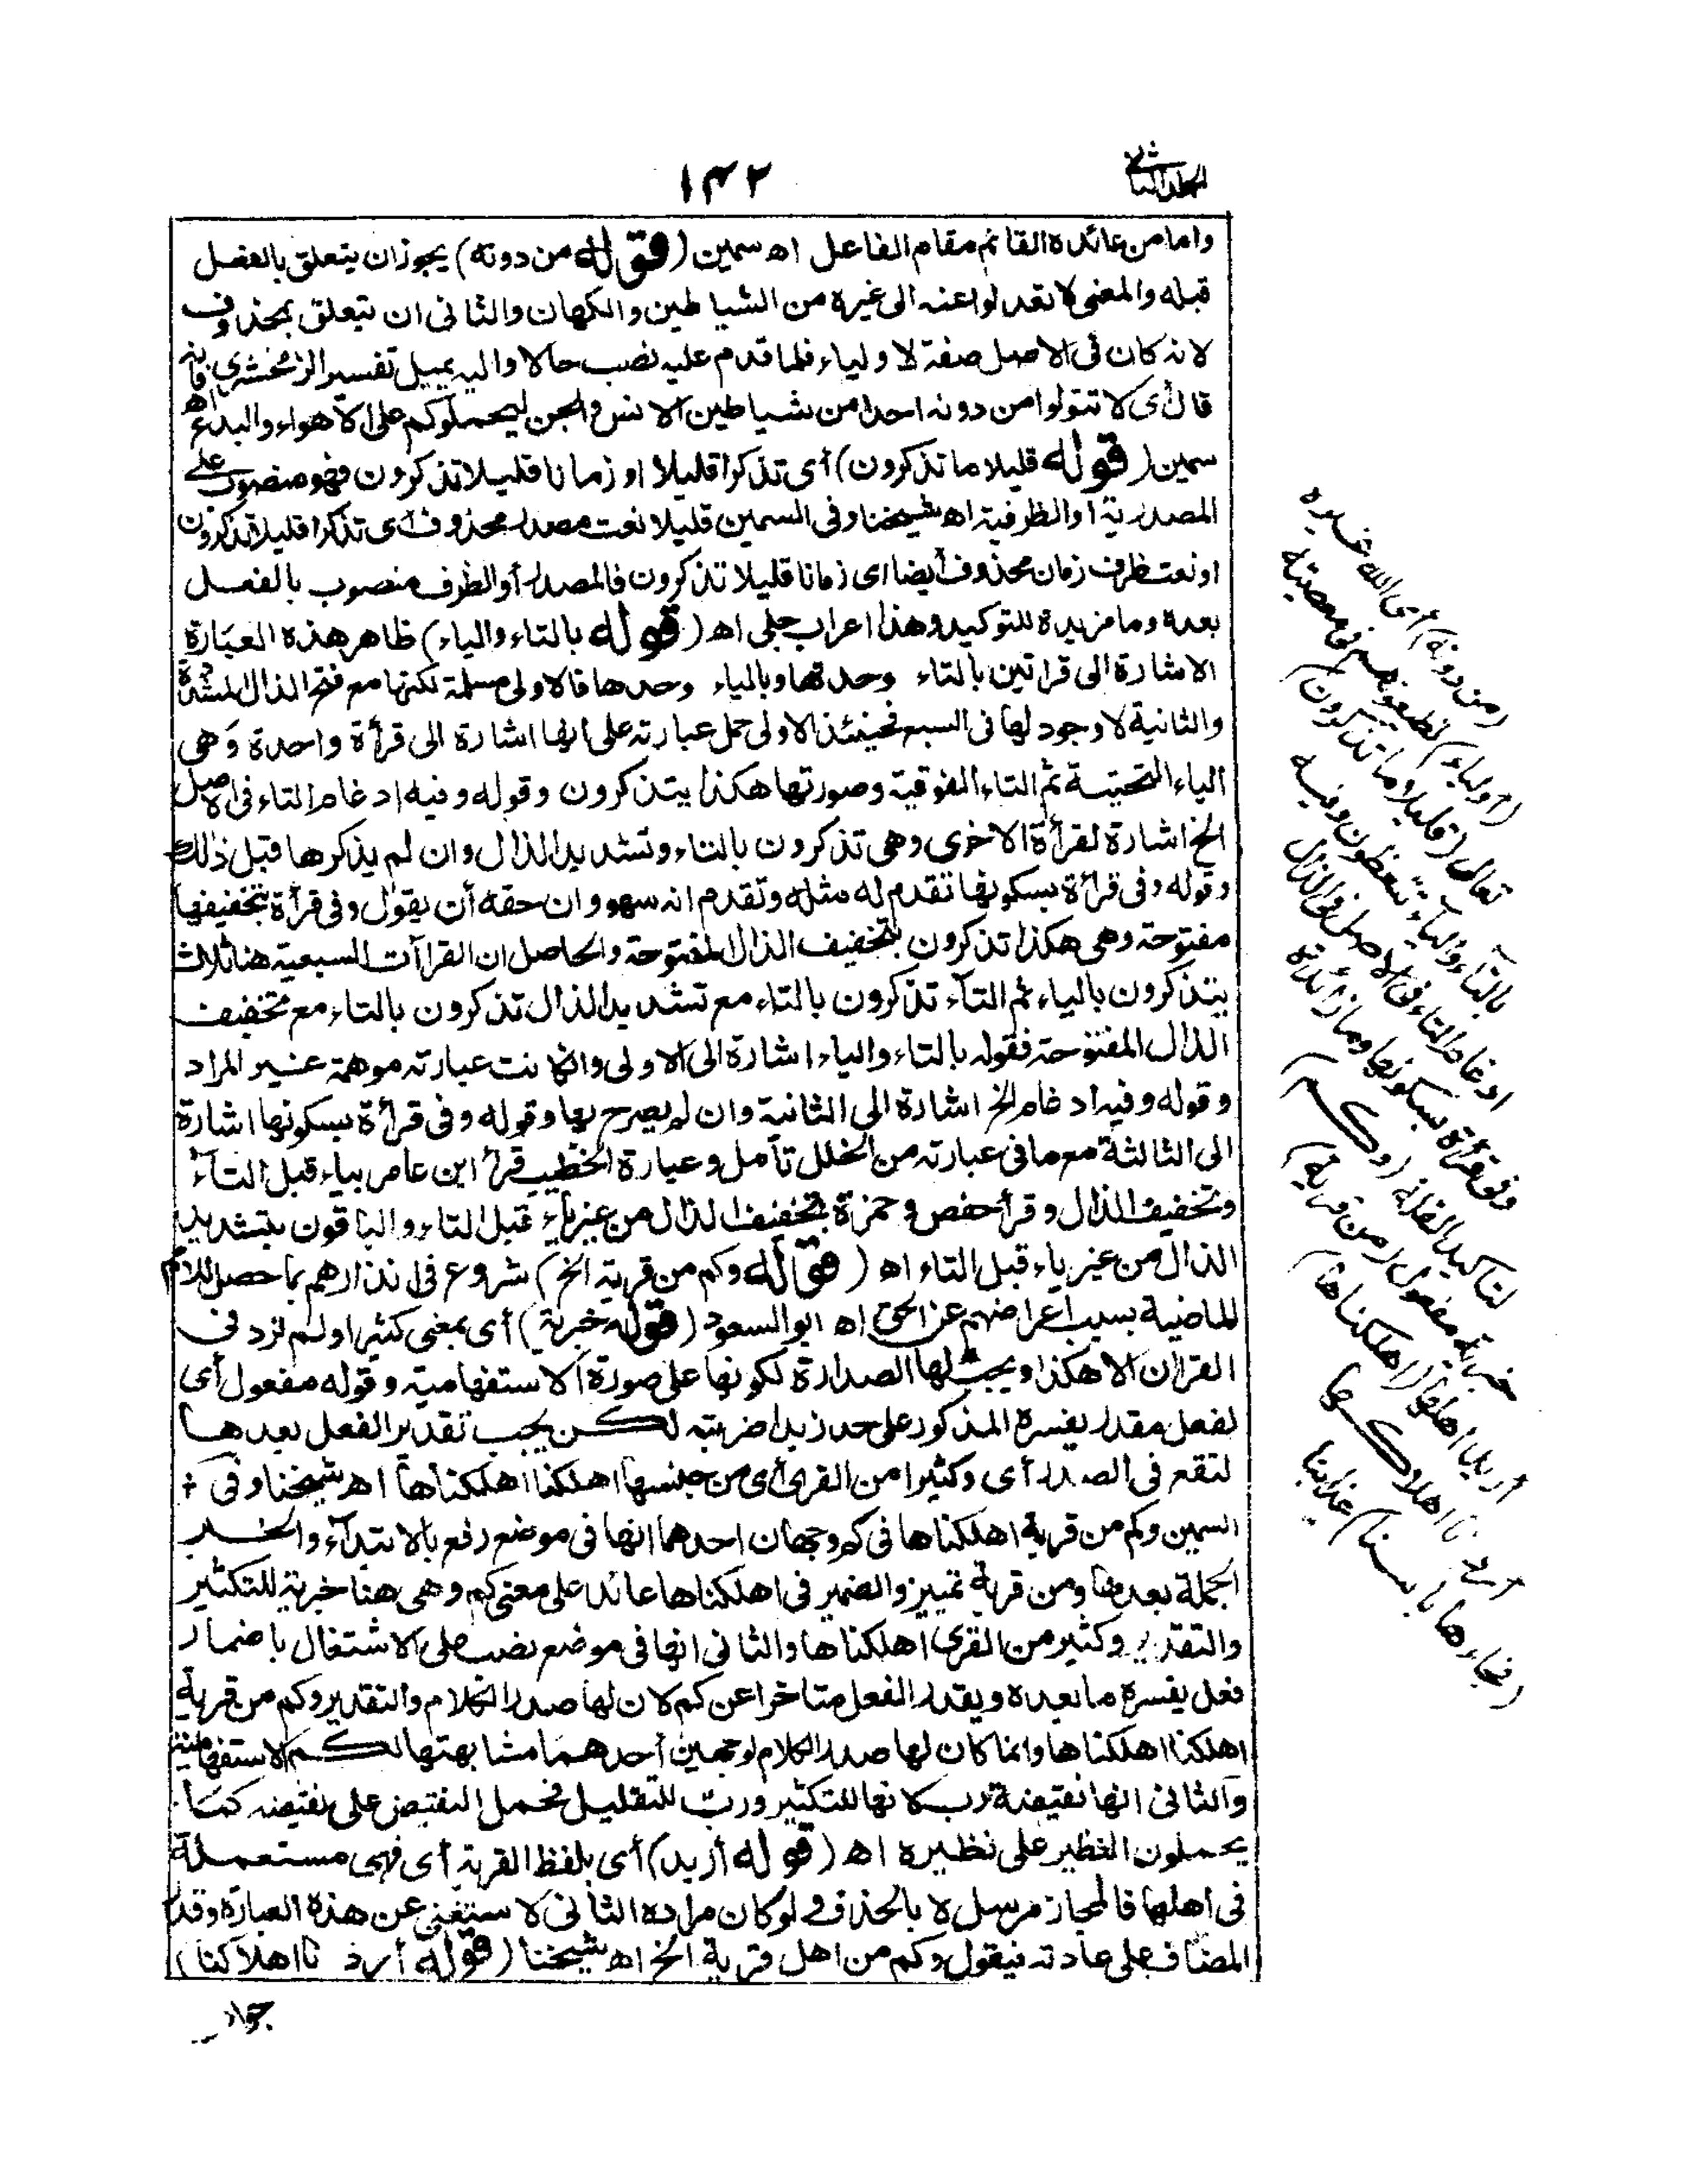 المجلد الثانى
١٤٢
واما من عائده القائم مقام الفاعل اه سمين (قوله من دونه) يجوز ان يتعلق بالفعل
قبله والمعنى لا تعدلوا عنه الى غيره من الشياطين والكهان والثانى ان يتعلق بمحذوف
لانه كان فى الاصل صفة لاولياء فلما قدم عليه نصب حالا واليه يميل تفسير الزمخشرى فانه
قال أى لا تتولوا من دونه احدا من شياطين الانس والجن ليحملوكم على الاهواء والبدع اه
سمين (قوله قليلا ما تذكرون) أى تذكرا قليلا او زمانا قليلا تذكرون فهو منصوب على
المصدرية أو الظرفية اه شيخنا وفى السمين قليلا نعت مصدر محذوف أى تذكرا قليلا تذكرون
او نعت ظرف زمان محذوف أيضا اى زمانا قليلا تذكرون فالمصدر أو الظرف منصوب بالفعل
بعده وما مزيدة للتوكيد وهذا اعراب جلى اه (قوله بالتاء والياء) ظاهر هذه العبارة
الاشارة الى قراتين بالتاء وحدتها وبالياء وحدها فالاولى مسلمة لكنها مع فتح الذال المشددة
والثانية لا وجود لها فى السبع فحينئذ الاولى حمل عبارته على انها اشارة الى قرأة واحدة وهى
الياء التحتية ثم التاء الفوقية وصورتها هكذا يتذكرون وقوله وفيه ادغام التاء فى الاصل
الخ اشارة لقرأة الاخرى وهى تذكرون بالتاء وتشديد الذال وان لم يذكرها قبل ذلك
وقوله وفى قرأة بسكونها تقدم له مثله وتقدم انه سهو وان حقه أن يقول وفى قرأة بتخفيفها
مفتوحة وهى هكذا تذكرون بتخفيف الذال المفتوحة والحاصل ان القراآت السبعية هنا ثلاث
يتذكرون بالياء ثم التآء تذكرون بالتاء مع تشديد الذال تذكرون بالتاء مع تخفيف
الذال المفتوحة فقوله بالتاء والياء اشارة الى الاولى وان كانت عبارته موهمة غير المراد
وقوله وفيه ادغام الخ اشارة الى الثانية وان لم يصرح بها وقوله وفى قرأة بسكونها اشارة
الى الثالثة مع ما فى عبارته من الخلل تأمل وعبارة الخطيب قرأ ابن عامر بياء قبل التآء
وتخفيف الذال وقرأ حفص وحمزة بتخفيف الذال من غير ياء قبل التاء والباقون بتشديد
الذال من غير ياء قبل التاء اه (قوله وكم من قرية الخ) شروع فى انذارهم بما حصل للامم
الماضية بسبب أعراضهم عن الحق اه ابو السعود (قوله خبرية) أى بمعنى كثيرا ولم ترد فى
القران الا هكذا ويجب لها الصدارة لكونها على صورة الاستفهامية وقوله مفعول أى
لفعل مقدر يفسره المذكور على حد زيدا ضربته لكن يجب تقدير الفعل بعدها
لتقع فى الصدر أى وكثيرا من القرى أى من جنسها اهلكنا اهلكناها اه شيخنا وفى
السمين وكم من قرية اهلكناها فى كم وجهان احدهما انها فى موضع رفع بالابتدآء والخبر
الجملة بعدها ومن قرية تمييز والضمير فى اهلكناها عائد على معنى كم وهى هنا خبرية للتكثير
والتقدير وكثير من القرى اهلكناها والثانى انها فى موضع نصب على الاشتغال باضمار
فعل يفسره ما بعده ويقدر الفعل متاخرا عن كم لان لها صدر الكلام والتقدير وكم من قرية
اهلكنا اهلكناها وانما كان لها صدر الكلام لوجهين أحدهما مشابهتها لكم الاستفهامية
والثانى انها نقيضة رب لانها للتكثير ورب للتقليل فحمل النقيض على نقيضه كما
يحملون النظير على نظيره اه (قوله أريد) أى بلفظ القرية أى فهى مستعملة
فى اهلها فالمجاز مرسل لا بالحذف ولو كان مراده الثانى لاستغنى عن هذه العبارة وقدر
المضاف على عادته فيقول وكم من اهل قرية الخ اه شيخنا (قوله أردنا اهلاكنا)
(من دونه) أى الله غيره
(أولياء) تطيعونهم فى معصيته
تعالى (قليلا ما تذكرون)
بالتآء والياء تتعظون وفيه
ادغام التاء فى الاصل فى الذال
وفى قرأة بسكونها وما زائدة
لتاكيد القلة (وكم)
خبرية مفعول (من قرية)
أريد اهلها (اهلكناها)
أردنا اهلاكها
(فجاءها باسنا) عذابنا